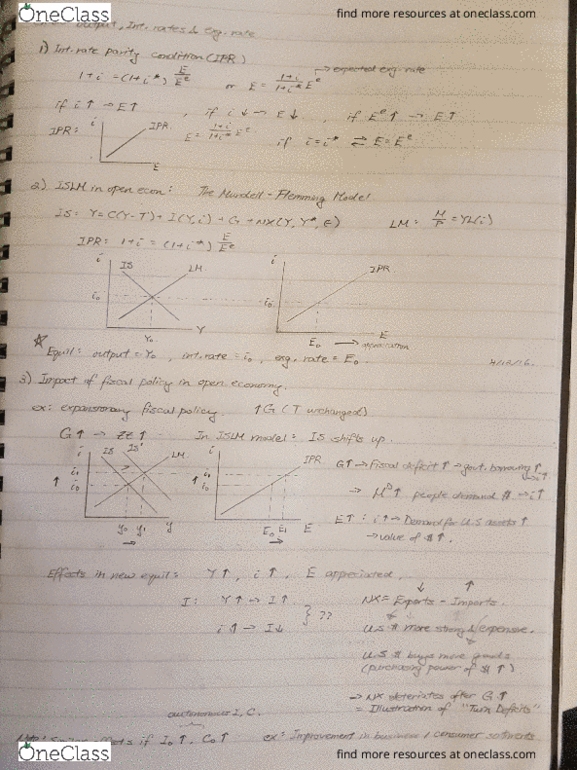 OneClass
find more resources at oneclass.com
output, Int. rates & exg. rate
1) Int. rate parity condition (IPR)
1+i = (1+i*) E/Eᵉ or E = (1+i)/(1+i*) Eᵉ → expected exg. rate
if i↑ → E↑ , if i↓ → E↓ , if Eᵉ↑ → E↑
IPR: i IPR E E = (1+i)/(1+i*) Eᵉ if i=i* ⇄ E=Eᵉ
2) ISLM in open econ: The Mundell - Flemming Model
IS: Y=C(Y-T)+I(Y,i)+G+NX(Y,Y*,E) LM: M/P = YL(i)
IPR: 1+i = (1+i*) E/Eᵉ
i IS LM i IPR
i₀ i₀
Y₀ Y E₀ E → appreciation
☆ Equil: output=Y₀, int.rate=i₀, exg. rate=E₀.
3) Impact of fiscal policy in open economy.
ex: expansionary fiscal policy. ↑G (T unchanged)
G↑ → ZZ↑ In ISLM model: IS shifts up.
i IS IS' LM i IPR
↑ i₁ i₀ ↑ i₁ i₀
Y₀ Y₁ Y E₀ E₁ E
→ →
G↑→Fiscal deficit↑→govt. borrowing↑
→ Mᴰ↑ people demand $→i↑
E↑: i↑→Demand for U.S assets↑
→value of $↑.
Effects in new equil: Y↑, i↑, E appreciated.
I: Y↑→I↑
i↑→I↓ } ??
↓ ↑
NX= Exports - Imports.
U.S $ more strong & expensive.
U.S $ buys more goods
(purchasing power of $↑)
→ NX deteriates after G↑
= Illustration of "Twin Deficits"
autonomous I, C.
if I₀↑, C₀↑ ex: Improvement in business / consumer
OneClass
find more resources at oneclass.com